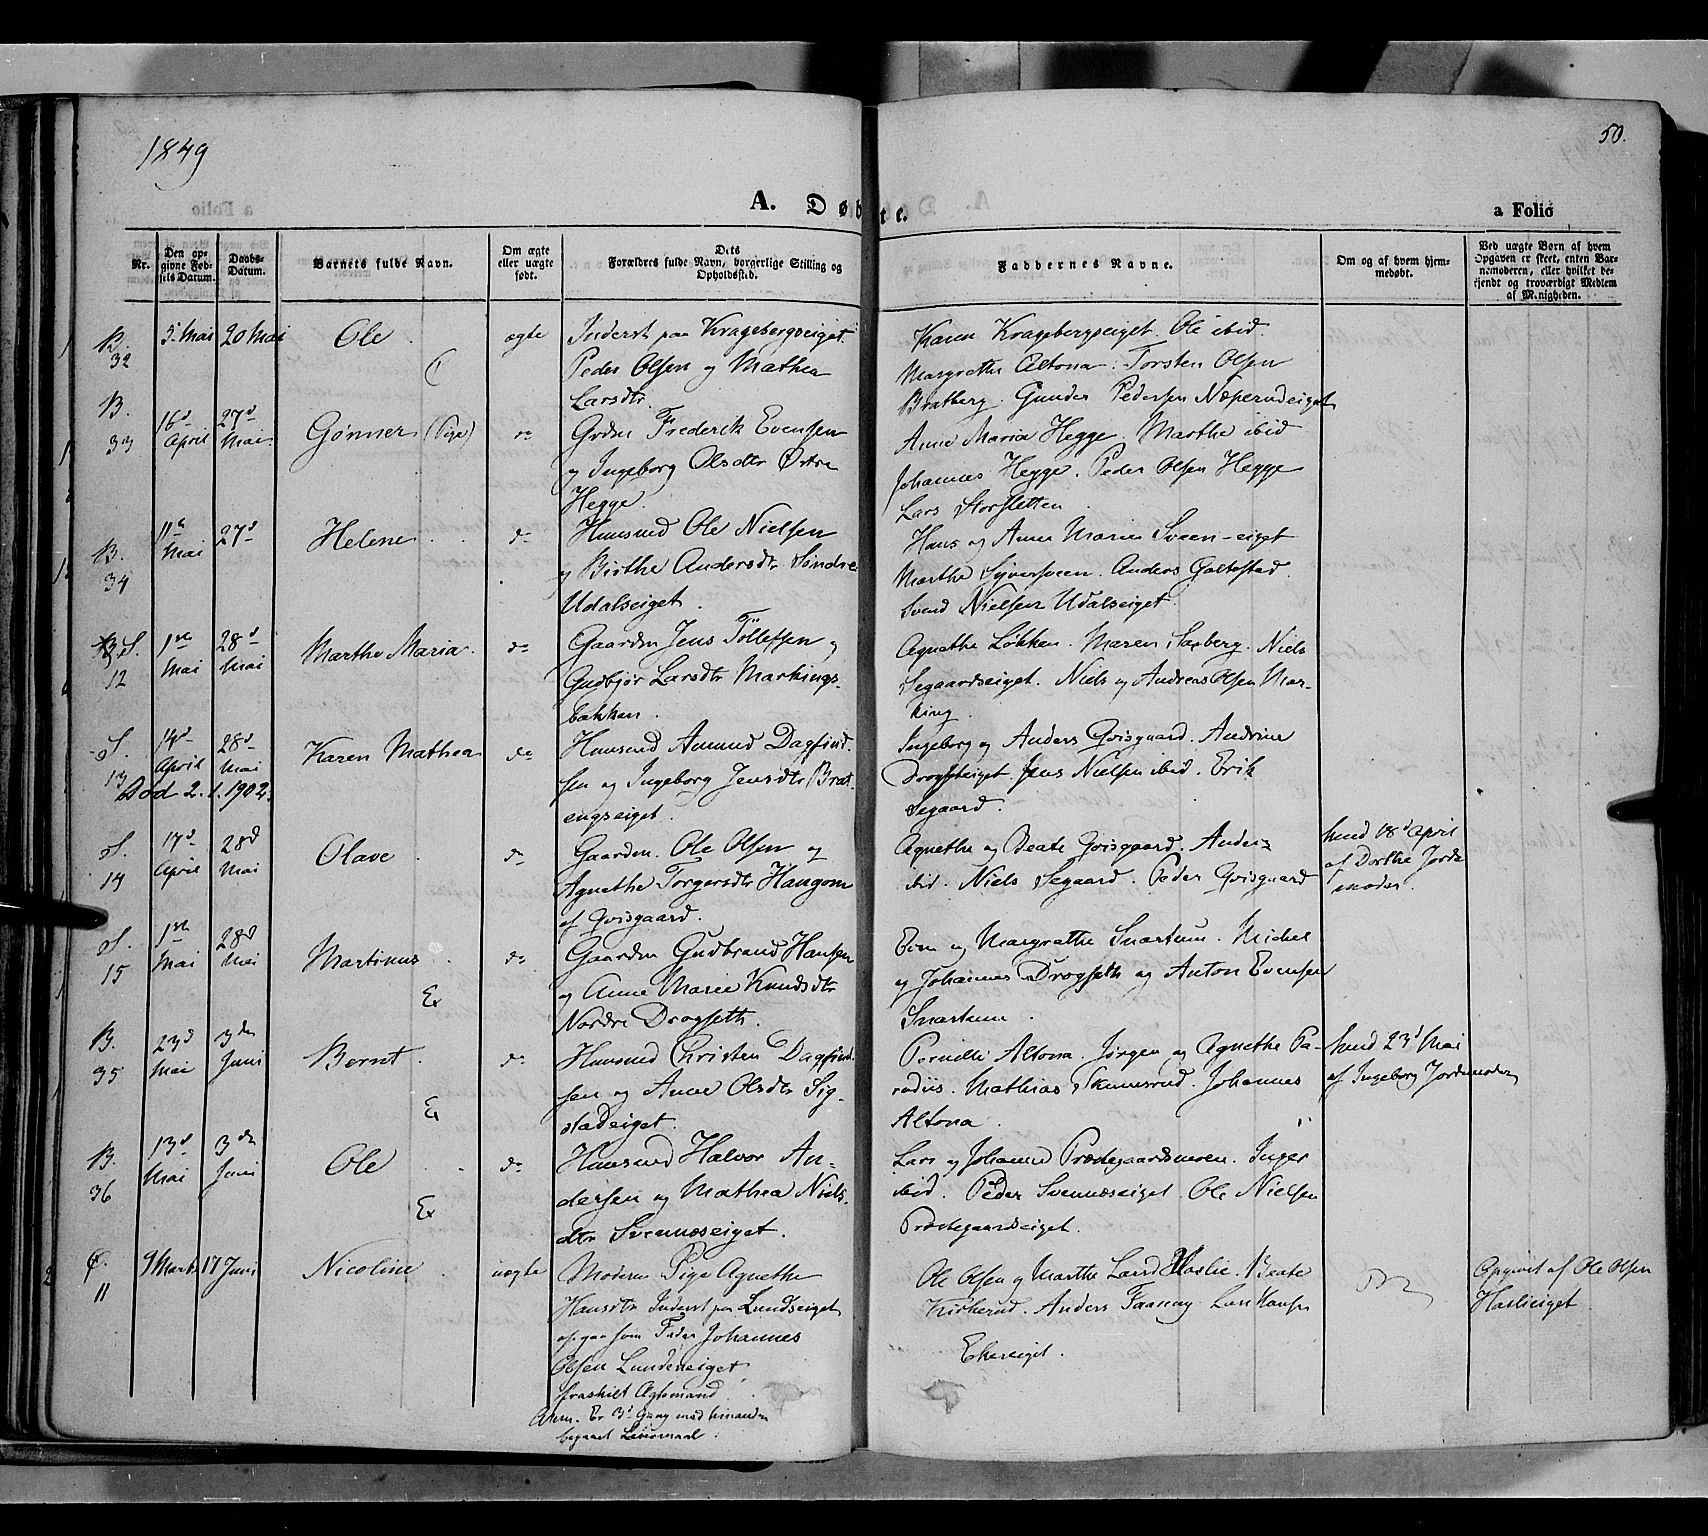 1849
50.
A. Døbte.
a Folio
Nr.
Den opgivne Fødsels Datum.
Daabs-Datum.
Barnets fulde Navn.
Om ægte eller uægte født.
Dets Forældres fulde Navn, borgerlige Stilling og Opholdsted.
Faddernes Navne.
Om og af hvem hjemmedøbt.
Ved uægte Børn af hvem Opgaven er skeet, enten Barnemoderen, eller hvilket bekjendt og troværdigt Medlem af Menigheden.
B. 32 5 Mai 20 Mai Ole ægte
Inderst paa Kragebergseiget
Peder Olsen og Mathea
Larsdtr.
Karen Kragebergseiget. Ole ibid
Margrethe Altona. Torsten Olsen
Bratberg. Gunder Pedersen Næperudeiget
B. 33 16d April 27d Mai Gønner (Pige) do
Grdm Frederik Evensen
og Ingeborg Olsdtr Østre
Hegge
Anne Maria Hegge. Marthe ibid
Johannes Hegge. Peder Olsen Hegge
Lars Storsletten
B. 34 11te Mai 27d Helene do
Huusmd Ole Nielsen
og Birthe Andersdtr Søndre
Udalseiget.
Hans og Anne Marie Sveen-eiget
Marthe Syversveen. Anders Galtestad.
Svend Nielsen Udalseiget.
S. 12 1ste Mai 28d Mai Marthe Maria do
Gaardm Jens Tollefsen og
Gudbjør Larsdtr Markings-
bakken.
Agnethe Løkken. Maren Saxberg. Niels
Segaardseiget. Niels og Andreas Olsen Mar-
king
S. 13 14d April 28d Mai Karen Mathea do
Død 2.1.1902.
Huusmd Amund Dagfind-
sen og Ingeborg Jensdtr Brat-
engseiget.
Ingeborg og Anders Qvisgaard. Andrine
Drogseteiget. Jens Nielsen ibid. Erik
Segaard.
S. 14 17d April 28d Mai Olave do
Gaardm. Ole Olsen og
Agnethe Torgersdtr Haugom
af Qvisgaard.
Agnethe og Beate Qvisgaard. Anders
ibid. Niels Segaard. Peder Qvisgaard
hmd 18d April
af Dorthe Jorde
moder.
S. 15 1ste Mai 28d Mai Martinus do
Ex
Gaardm Gudbrand Hansen
og Anne Marie Knudsdtr
Nordre Drogseth.
Even og Margrethe Snartum. Michel
og Johannes Drogseth og Anton Evensen
Snartum.
B. 35 23d Mai 3die Juni Bernt do
Ex
Huusmd Christen Dagfind-
sen og Anne Olsdtr Sig-
stadeiget.
Pernille Altona. Jørgen og Agnethe Pa-
radiis. Mathias Skumsrud. Johannes
Altona.
hmd 23d Mai
af Ingeborg Jordemoder
B. 36 13d Mai 3die Juni Ole do
Ex
Huusmd Halvor An-
dersen og Mathea Niels-
dtr Svennæseiget.
Lars og Johanne Præstegaardsmoen. Inger
ibid. Peder Svennæseiget. Ole Nielsen
Præstegaardseiget.
11 9 Marts 17 Juni Nicoline uægte
Moderen Pige Agnethe
Hansdtr Inderst paa Lundseiget
opgav som Fader Johannes
Olsen Lundseiget
fraskilt Ægtemand.
Anm. Er 3d Gang med hinanden
begaaet Leiermaal.
Ole Olsen og Marthe Larsd Haslie. Beate
Kirkerud. Anders Faarang. Lars Hansen
Ekereiget.
Opgivet af Ole Olsen
Haslieiget.